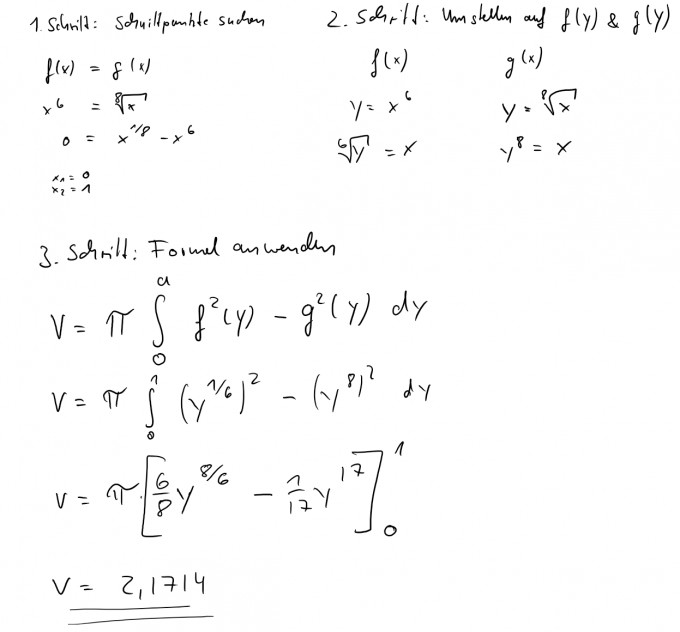 1. Schritt: Schnittpunkte suchen
f(x) = g(x)
x^6 = ⁸√x
0 = x^1/8 - x^6
x₁ = 0
x₂ = 1
2. Schritt: Umstellen auf f(y) & g(y)
f(x) g(x)
y = x^6 y = ⁸√x
⁶√y = x y^8 = x
3. Schritt: Formel anwenden
V = π ∫₀^a f²(y) - g²(y) dy
V = π ∫₀^1 (y^1/6)² - (y^8)² dy
V = π · [6/8 y^8/6 - 1/17 y^17]₀^1
V = 2,1714